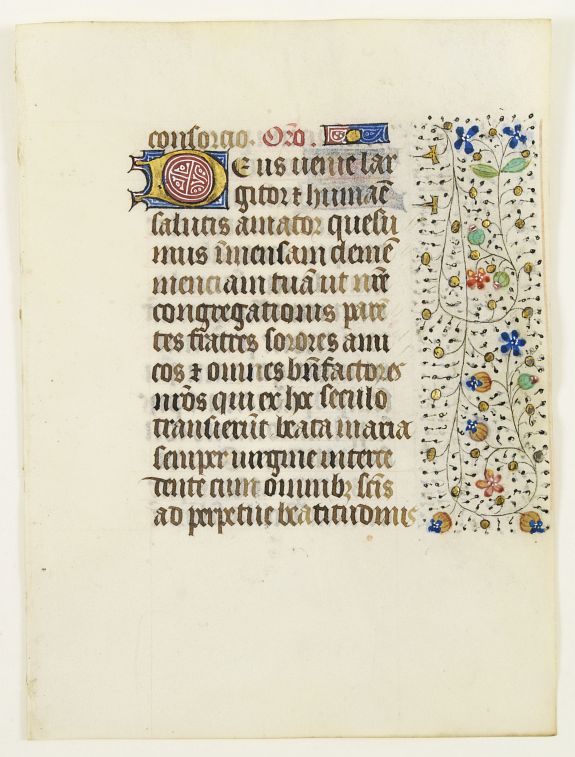 consorcio. Oro.
Deus uenie lar
gitor ⁊ humāe
salutis amator quesu
mus īmensam cleme
menciam tuā ut nr̄e
congregationis paren
tes fratres sorores ami
cos ⁊ omnes bn̄factores
nr̄os qui ex hoc seculo
transierūt beata maria
semper uirgine interce
dente cum omnibꝫ sc̄is
ad perpetue beatitudinis